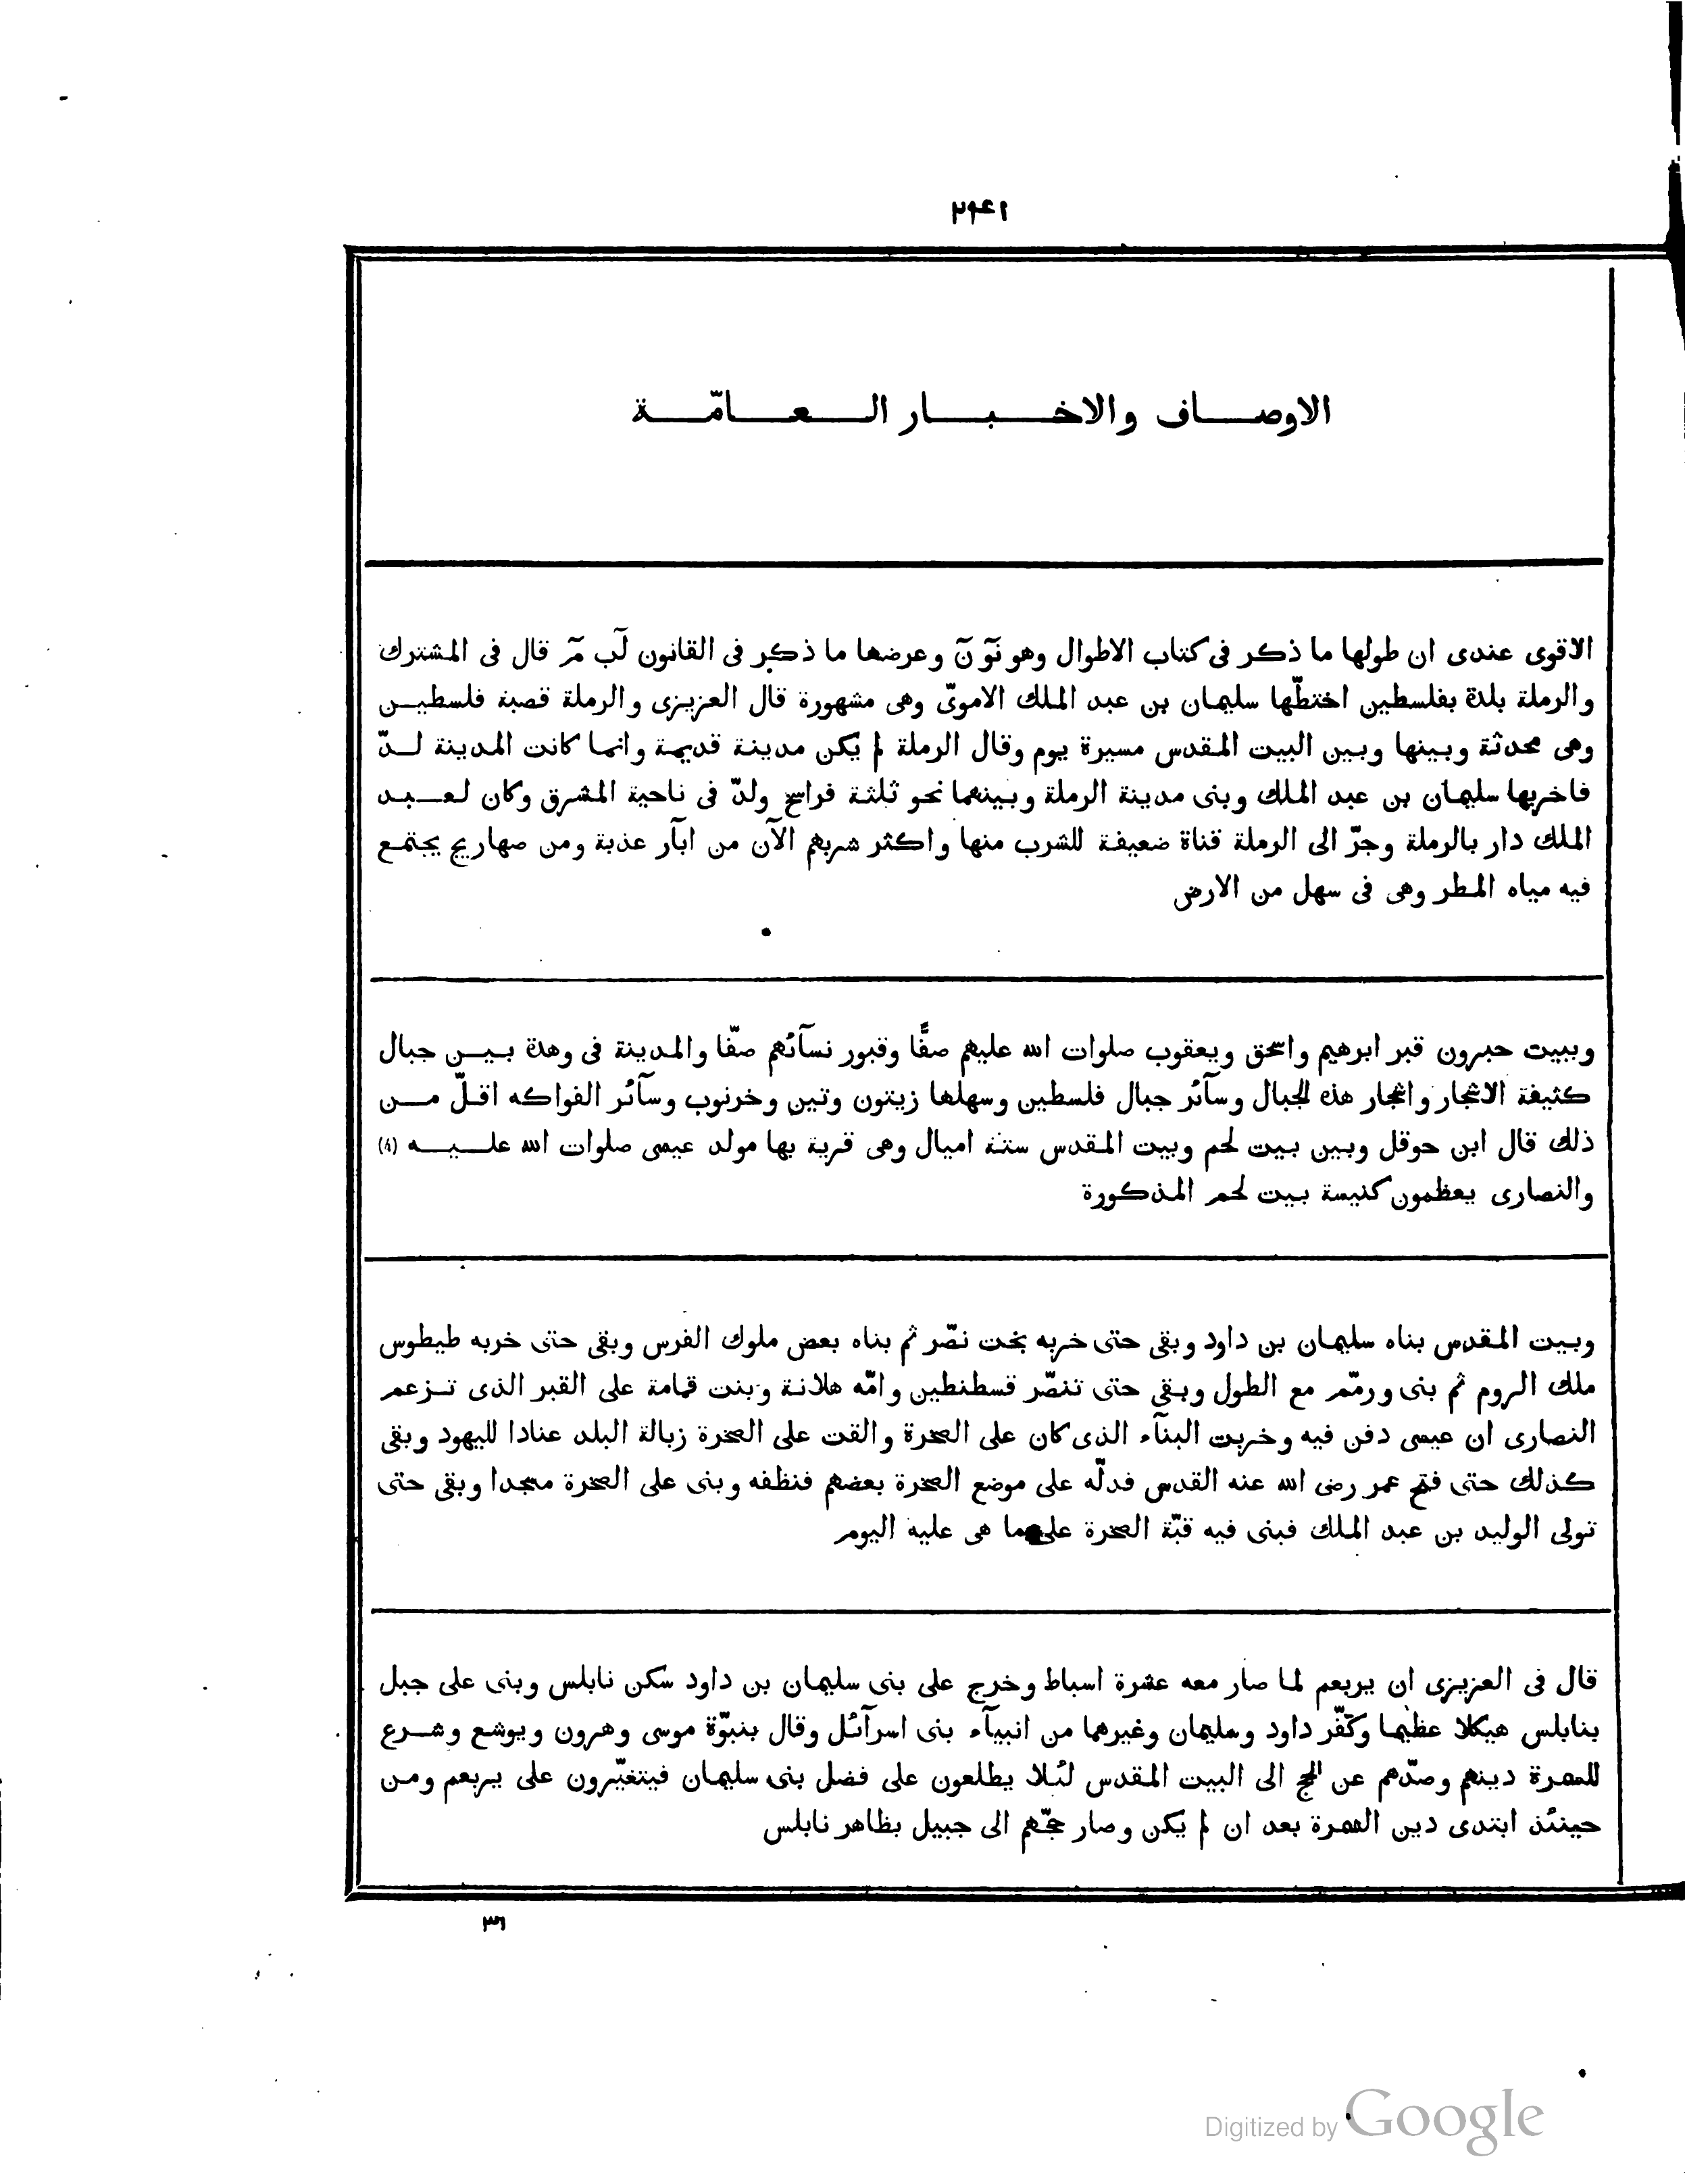 ٢٤١
الاوصاف والاخبار العامّة
الاقوى عندى ان طولها ما ذكر فى كتاب الاطوال وهو نَوَ نَ وعرضها ما ذكر فى القانون لَب مَر قال فى المشترك
والرملة بلدة بفلسطين اختطّها سليمان بن عبد الملك الاموىّ وهى مشهورة قال العزيزى والرملة قصبة فلسطين
وهى محدثة وبينها وبين البيت المقدس مسيرة يوم وقال الرملة لم يكن مدينة قديمة وانما كانت المدينة لدّ
فاخربها سليمان بن عبد الملك وبنى مدينة الرملة وبينهما نحو ثلثة فراسخ ولدّ فى ناحية المشرق وكان لعبد
الملك دار بالرملة وجرّ الى الرملة قناة ضعيفة للشرب منها واكثر شربهم الآن من ابآر عذبة ومن صهاريج يجتمع
فيه مياه المطر وهى فى سهل من الارض
وببيت حبرون قبر ابرهيم واسحق ويعقوب صلوات الله عليهم صفًّا وقبور نسآئهم صفّا والمدينة فى وهدة بين جبال
كثيفة الاشجار واشجار هذه الجبال وسآئر جبال فلسطين وسهلها زيتون وتين وخرنوب وسآئر الفواكه اقلّ من
ذلك قال ابن حوقل وبين بيت لحم وبيت المقدس ستة اميال وهى قرية بها مولد عيسى صلوات الله عليه (٤)
والنصارى يعظمون كنيسة بيت لحم المذكورة
وبيت المقدس بناه سليمان بن داود وبقى حتى خربه بخت نصّر ثم بناه بعض ملوك الفرس وبقى حتى خربه طيطوس
ملك الروم ثم بنى ورمّم مع الطول وبقى حتى تنصّر قسطنطين وامّه هلانة وبنت قمامة على القبر الذى تزعم
النصارى ان عيسى دفن فيه وخربت البنآء الذى كان على الصخرة والقت على الصخرة زبالة البلد عنادا لليهود وبقى
كذلك حتى فتح عمر رضى الله عنه القدس فدلّه على موضع الصخرة بعضهم فنظفه وبنى على الصخرة مسجدا وبقى حتى
تولى الوليد بن عبد الملك فبنى فيه قبّة الصخرة على ما هى عليه اليوم
قال فى العزيزى ان يربعم لما صار معه عشرة اسباط وخرج على بنى سليمان بن داود سكن نابلس وبنى على جبل
بنابلس هيكلا عظيما وكفّر داود وسليمان وغيرهما من انبيآء بنى اسرآئل وقال بنبوّة موسى وهرون ويوشع وشرع
للسمرة دينهم وصدّهم عن الحج الى البيت المقدس لئلا يطلعون على فضل بنى سليمان فيتغيّرون على يربعم ومن
حينئذ ابتدى دين السمرة بعد ان لم يكن وصار حجّهم الى جبيل بظاهر نابلس
٣١
Digitized by Google